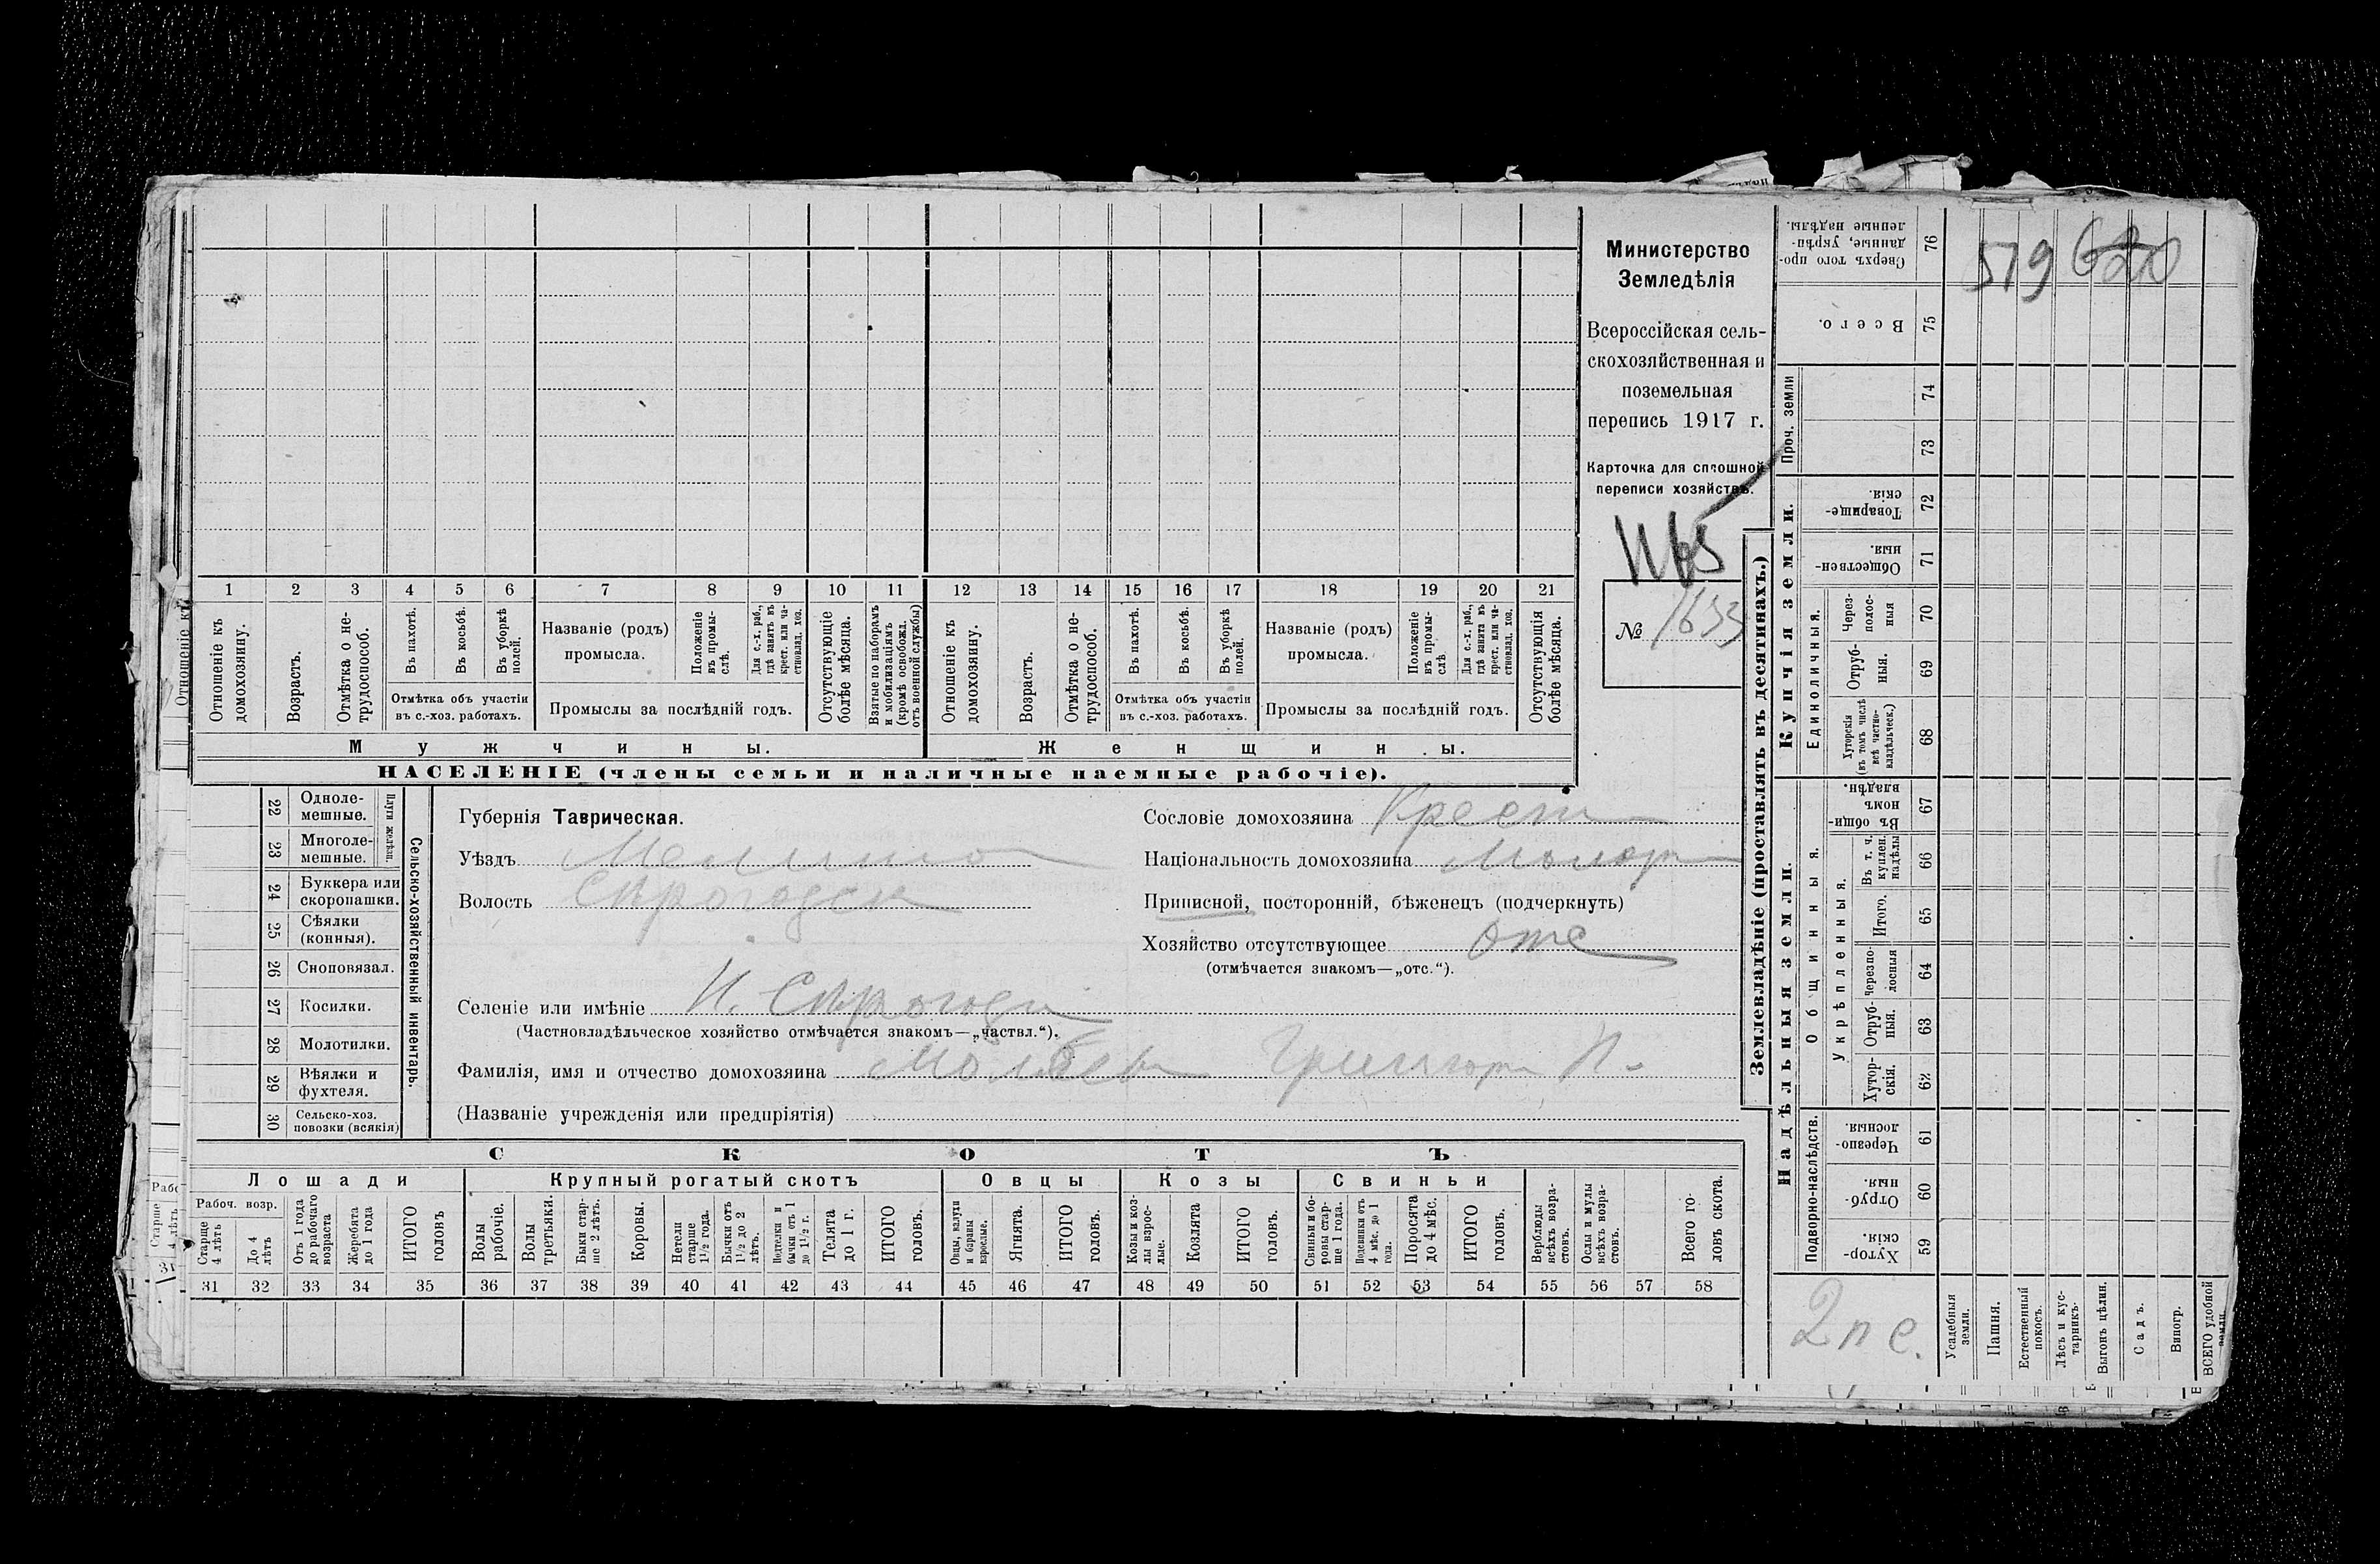 519 620
Министерство
Земледѣлія
Всероссійская сель-
скохозяйственная и
поземельная
перепись 1917 г.
Карточка для сплошной
переписи хозяйствъ.
1165
№ 1633
1 2 3 4 5 6 7 8 9 10 11 12 13 14 15 16 17 18 19 20 21
Отношеніе къ домохозяину.
Возрастъ.
Отмѣтка о не-трудоспособ.
Въ пахотѣ.
Въ косьбѣ.
Въ уборкѣ полей.
Отмѣтка объ участіи
въ с.-хоз. работахъ.
Названіе (родъ)
промысла.
Положеніе въ промы-слѣ.
Для с.-х. раб., гдѣ занятъ въ крест. или ча-стновлад. хоз.
Промыслы за послѣдній годъ.
Отсутствующіе болѣе мѣсяца.
Взятые по наборамъ и мобилизаціямъ (кромѣ освобожд. отъ военной службы)
Отношеніе къ домохозяину.
Возрастъ.
Отмѣтка о не-трудоспособ.
Въ пахотѣ.
Въ косьбѣ.
Въ уборкѣ полей.
Отмѣтка объ участіи
въ с.-хоз. работахъ.
Названіе (родъ)
промысла.
Положеніе въ промы-слѣ.
Для с.-х. раб., гдѣ занята въ крест. или ча-стновлад. хоз.
Промыслы за послѣдній годъ.
Отсутствующія болѣе мѣсяца.
Мужчины.
Женщины.
НАСЕЛЕНІЕ (члены семьи и наличные наемные рабочіе).
22 Одноле-мешные.
23 Многоле-мешные.
Плуги желѣзн.
24 Буккера или скоропашки.
25 Сѣялки (конныя).
26 Сноповязал.
27 Косилки.
28 Молотилки.
29 Вѣялки и фухтеля.
30 Сельско-хоз. повозки (всякія)
Сельско-хозяйственный инвентарь.
Губернія Таврическая.
Уѣздъ Мелитоп
Волость Сѣрогозск
Селеніе или имѣніе Н. Сѣрогозы
(Частновладѣльческое хозяйство отмѣчается знакомъ—„частвл.“).
Фамилія, имя и отчество домохозяина Григор Н.
(Названіе учрежденія или предпріятія)
Сословіе домохозяина Крест
Національность домохозяина Малор
Приписной, посторонній, бѣженецъ (подчеркнуть)
Хозяйство отсутствующее отс
(отмѣчается знакомъ—„отс.“).
СКОТЪ
Лошади
Крупный рогатый скотъ
Овцы
Козы
Свиньи
Рабоч. возр.
Старше 4 лѣтъ
До 4 лѣтъ
Отъ 1 года до рабочаго возраста
Жеребята до 1 года
ИТОГО головъ
Волы рабочіе.
Волы третьяки.
Быки стар-ше 2 лѣтъ.
Коровы.
Нетели старше 1½ года.
Бычки отъ 1½ до 2 лѣтъ.
Подтелки и бычки отъ 1 до 1½ г.
Телята до 1 г.
ИТОГО головъ.
Овцы, валухи и бараны взрослые.
Ягнята.
ИТОГО головъ.
Козы и коз-лы взрос-лые.
Козлята
ИТОГО головъ.
Свиньи и бо-ровы стар-ше 1 года.
Подсвинки отъ 4 мѣс. до 1 года.
Поросята до 4 мѣс.
ИТОГО головъ.
Верблюды всѣхъ возра-стовъ.
Ослы и мулы всѣхъ возра-стовъ.
Всего го-ловъ скота.
31 32 33 34 35 36 37 38 39 40 41 42 43 44 45 46 47 48 49 50 51 52 53 54 55 56 57 58
Землевладѣніе (проставлять въ десятинахъ.)
Сверхъ того про-данные, укрѣп-ленные надѣлы. 76
Всего. 75
Проч. земли
74
73
Купчія земли.
Товарище-скія. 72
Обществен-ныя. 71
Единоличныя.
Через-полос-ныя 70
Отруб-ныя. 69
Хуторскія (въ томъ числѣ всѣ частно-владѣльческ.) 68
Надѣльныя земли.
Общинныя.
Въ общин-номъ владѣн. 67
Укрѣпленныя.
Въ т. ч. куплен. надѣлы 66
Итого. 65
Черезпо-лосныя 64
Отруб-ныя. 63
Хутор-скія. 62
Подворно-наслѣдств.
Черезпо-лосныя. 61
Отруб-ныя. 60
Хутор-скія. 59
2 п с.
Усадебныя земли.
Пашня.
Естественный покосъ.
Лѣсъ и кус-тарникъ.
Выгонъ цѣлин.
Садъ.
Виногр.
ВСЕГО удобной земли